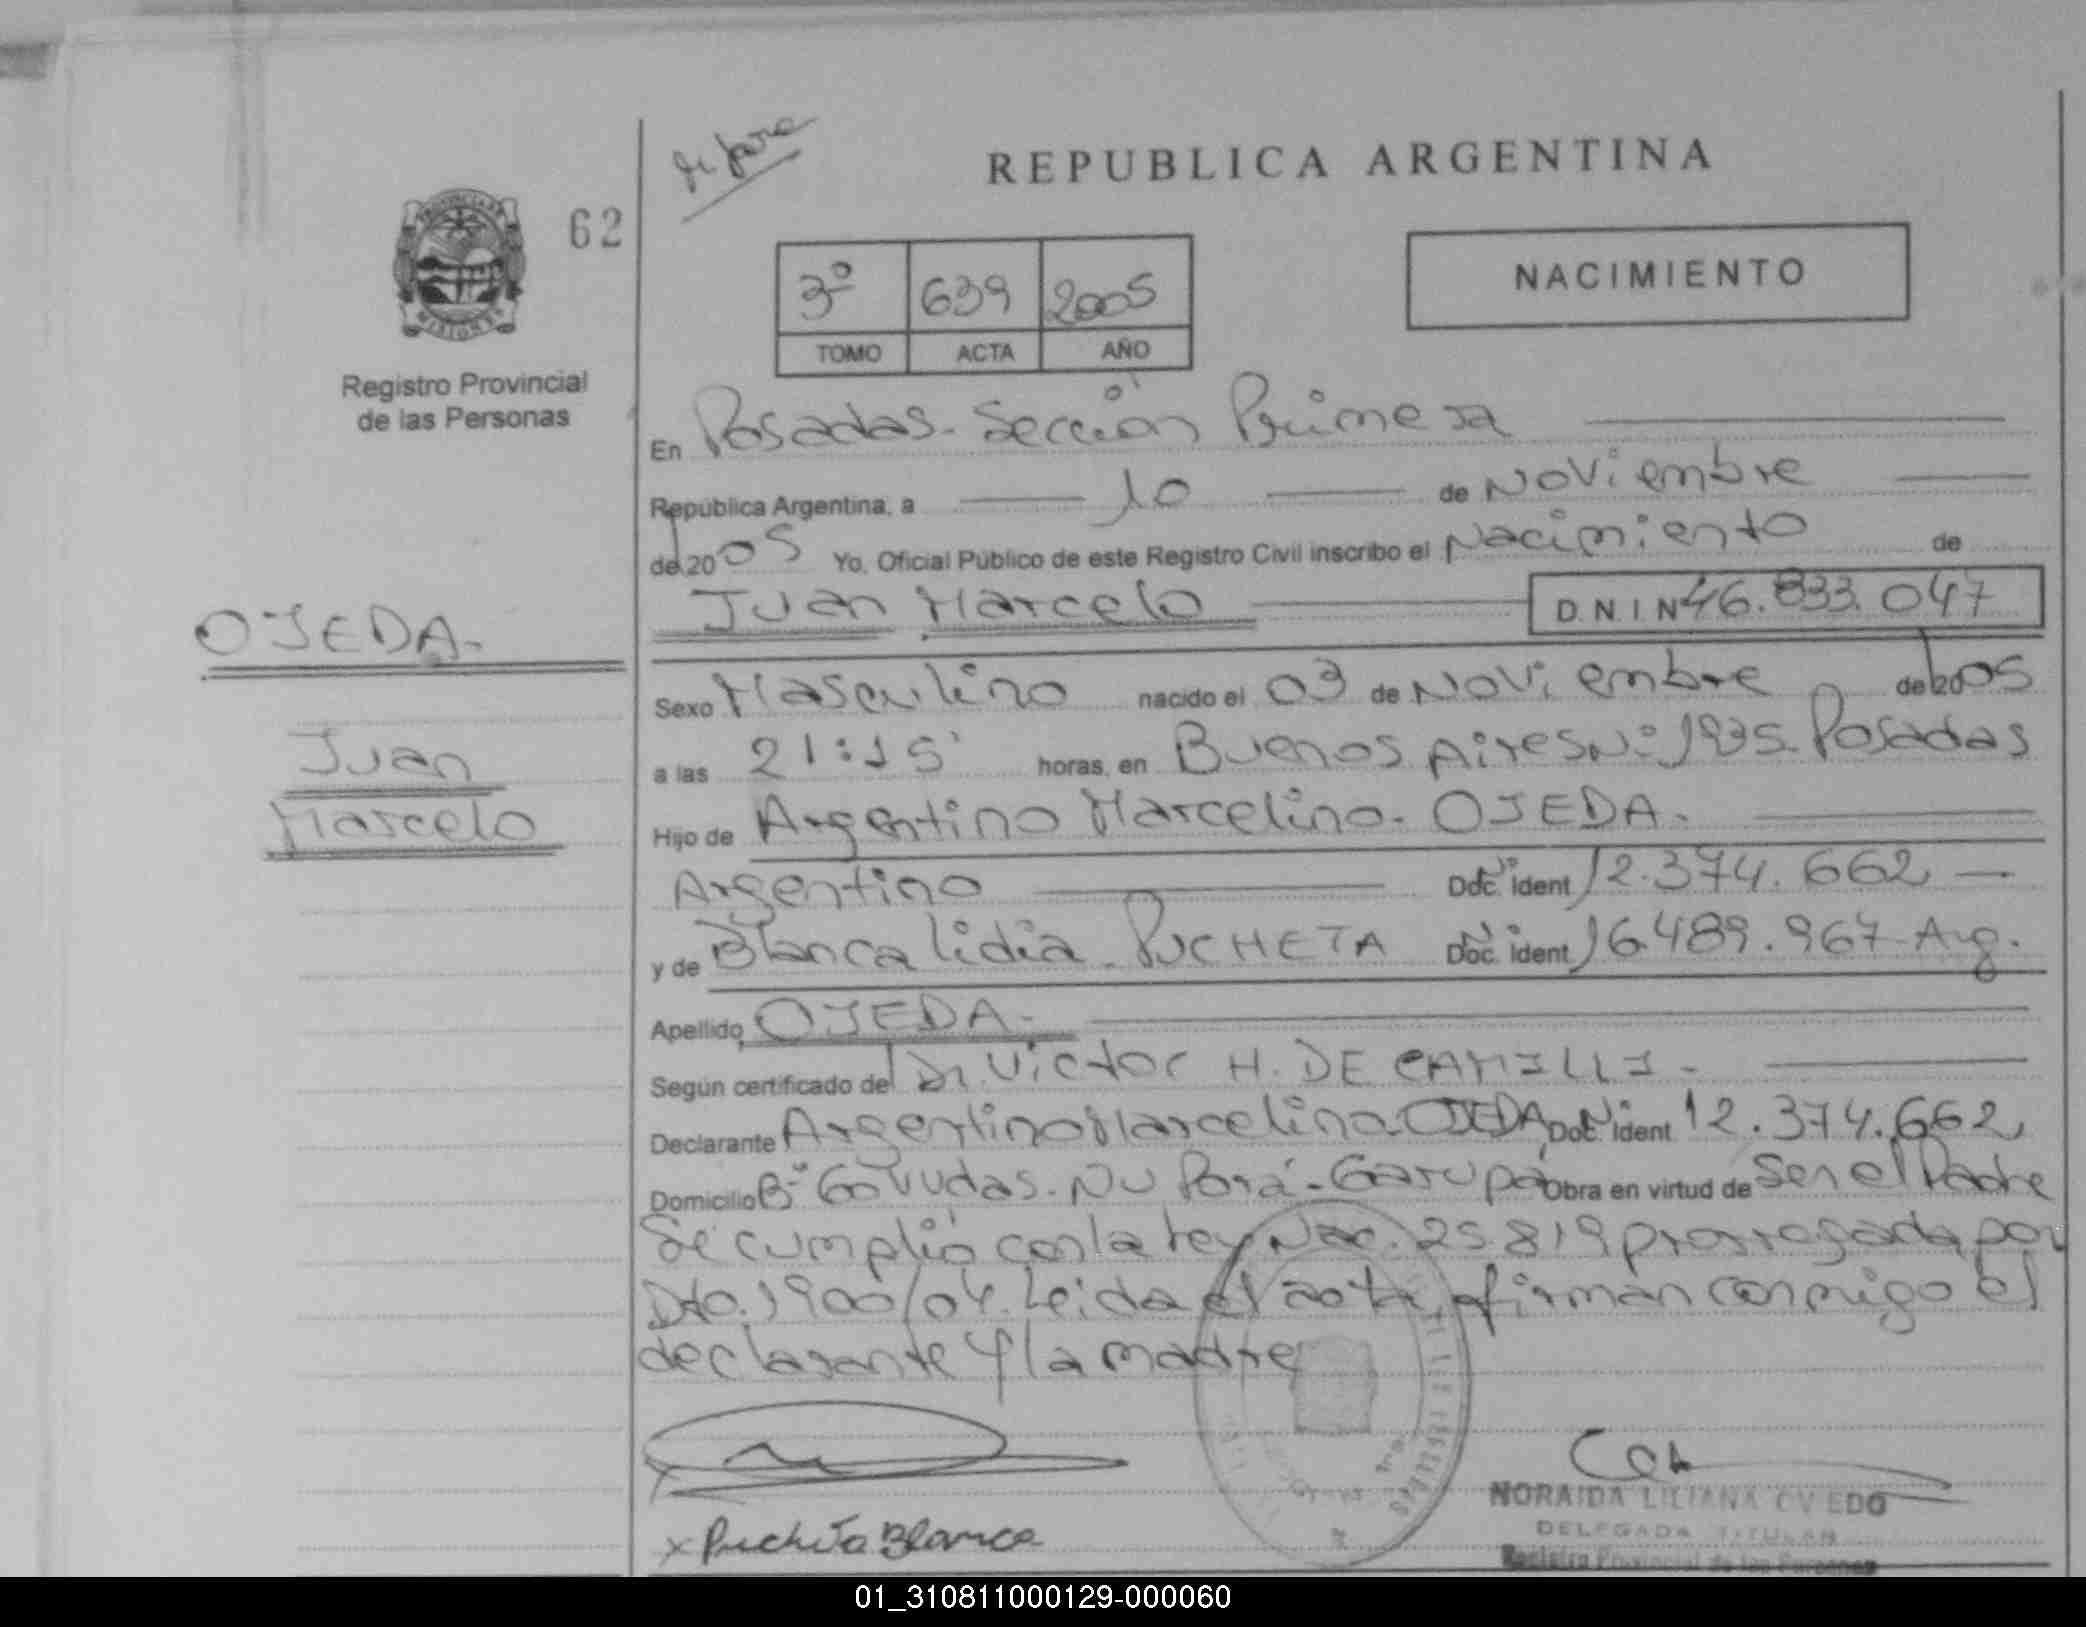 REPUBLICA ARGENTINA
62
NACIMIENTO
3º 639 2005
TOMO ACTA AÑO
MISIONES
Registro Provincial
de las Personas
En Posadas - Sección Primera
República Argentina, a 10 de Noviembre
de 2005 Yo, Oficial Público de este Registro Civil inscribo el Nacimiento de
Juan Marcelo D.N.I.Nº 46.833.047
OJEDA.
Juan
Marcelo
Sexo Masculino nacido el 03 de Noviembre de 2005
a las 21:15' horas, en Buenos Aires Nº 1935 - Posadas
Hijo de Argentino Marcelino - OJEDA.
Argentino Doc. ident 12.374.662
y de Blanca lidia - PUCHETA Doc. ident 16.489.967 - Arg.
Apellido OJEDA.
Según certificado del Dr. Victor H. DE CAMILLI.
Declarante Argentino Marcelino OJEDA Doc. ident 12.374.662
Domicilio Bº Ñu Porá - Garupá Obra en virtud de Ser el Padre
Se cumplió con la ley Nac. 25.819 prorrogada por
Dto. 1900/04. Leida el acta, firman conmigo el
declarante y la madre
x Pucheta Blanca
NORAIDA LILIANA OVIEDO
DELEGADA TITULAR
Registro Provincial de las Personas
01_310811000129-000060